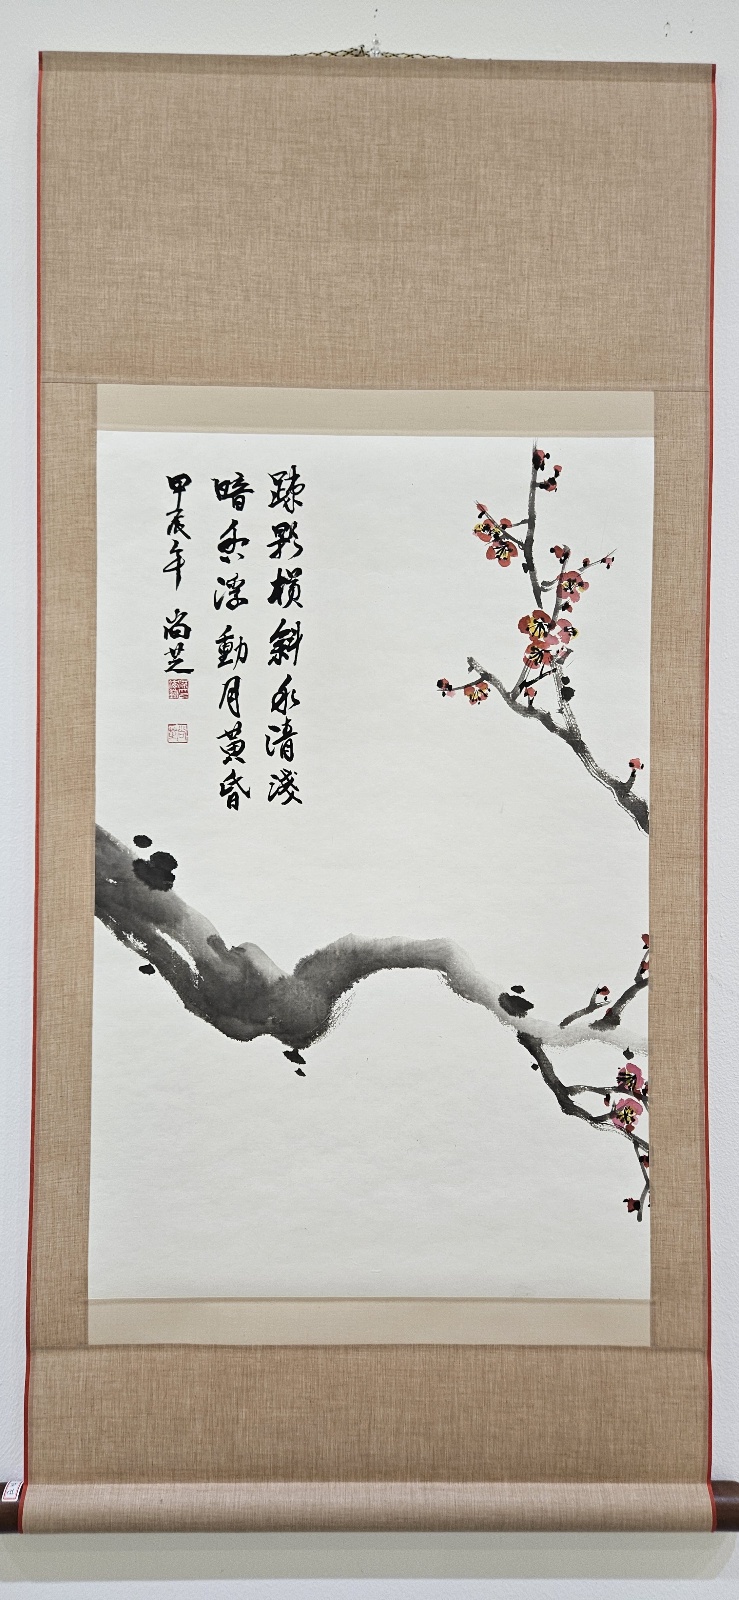 疎影橫斜水清淺
暗香浮動月黃昏
甲辰年 尚芝